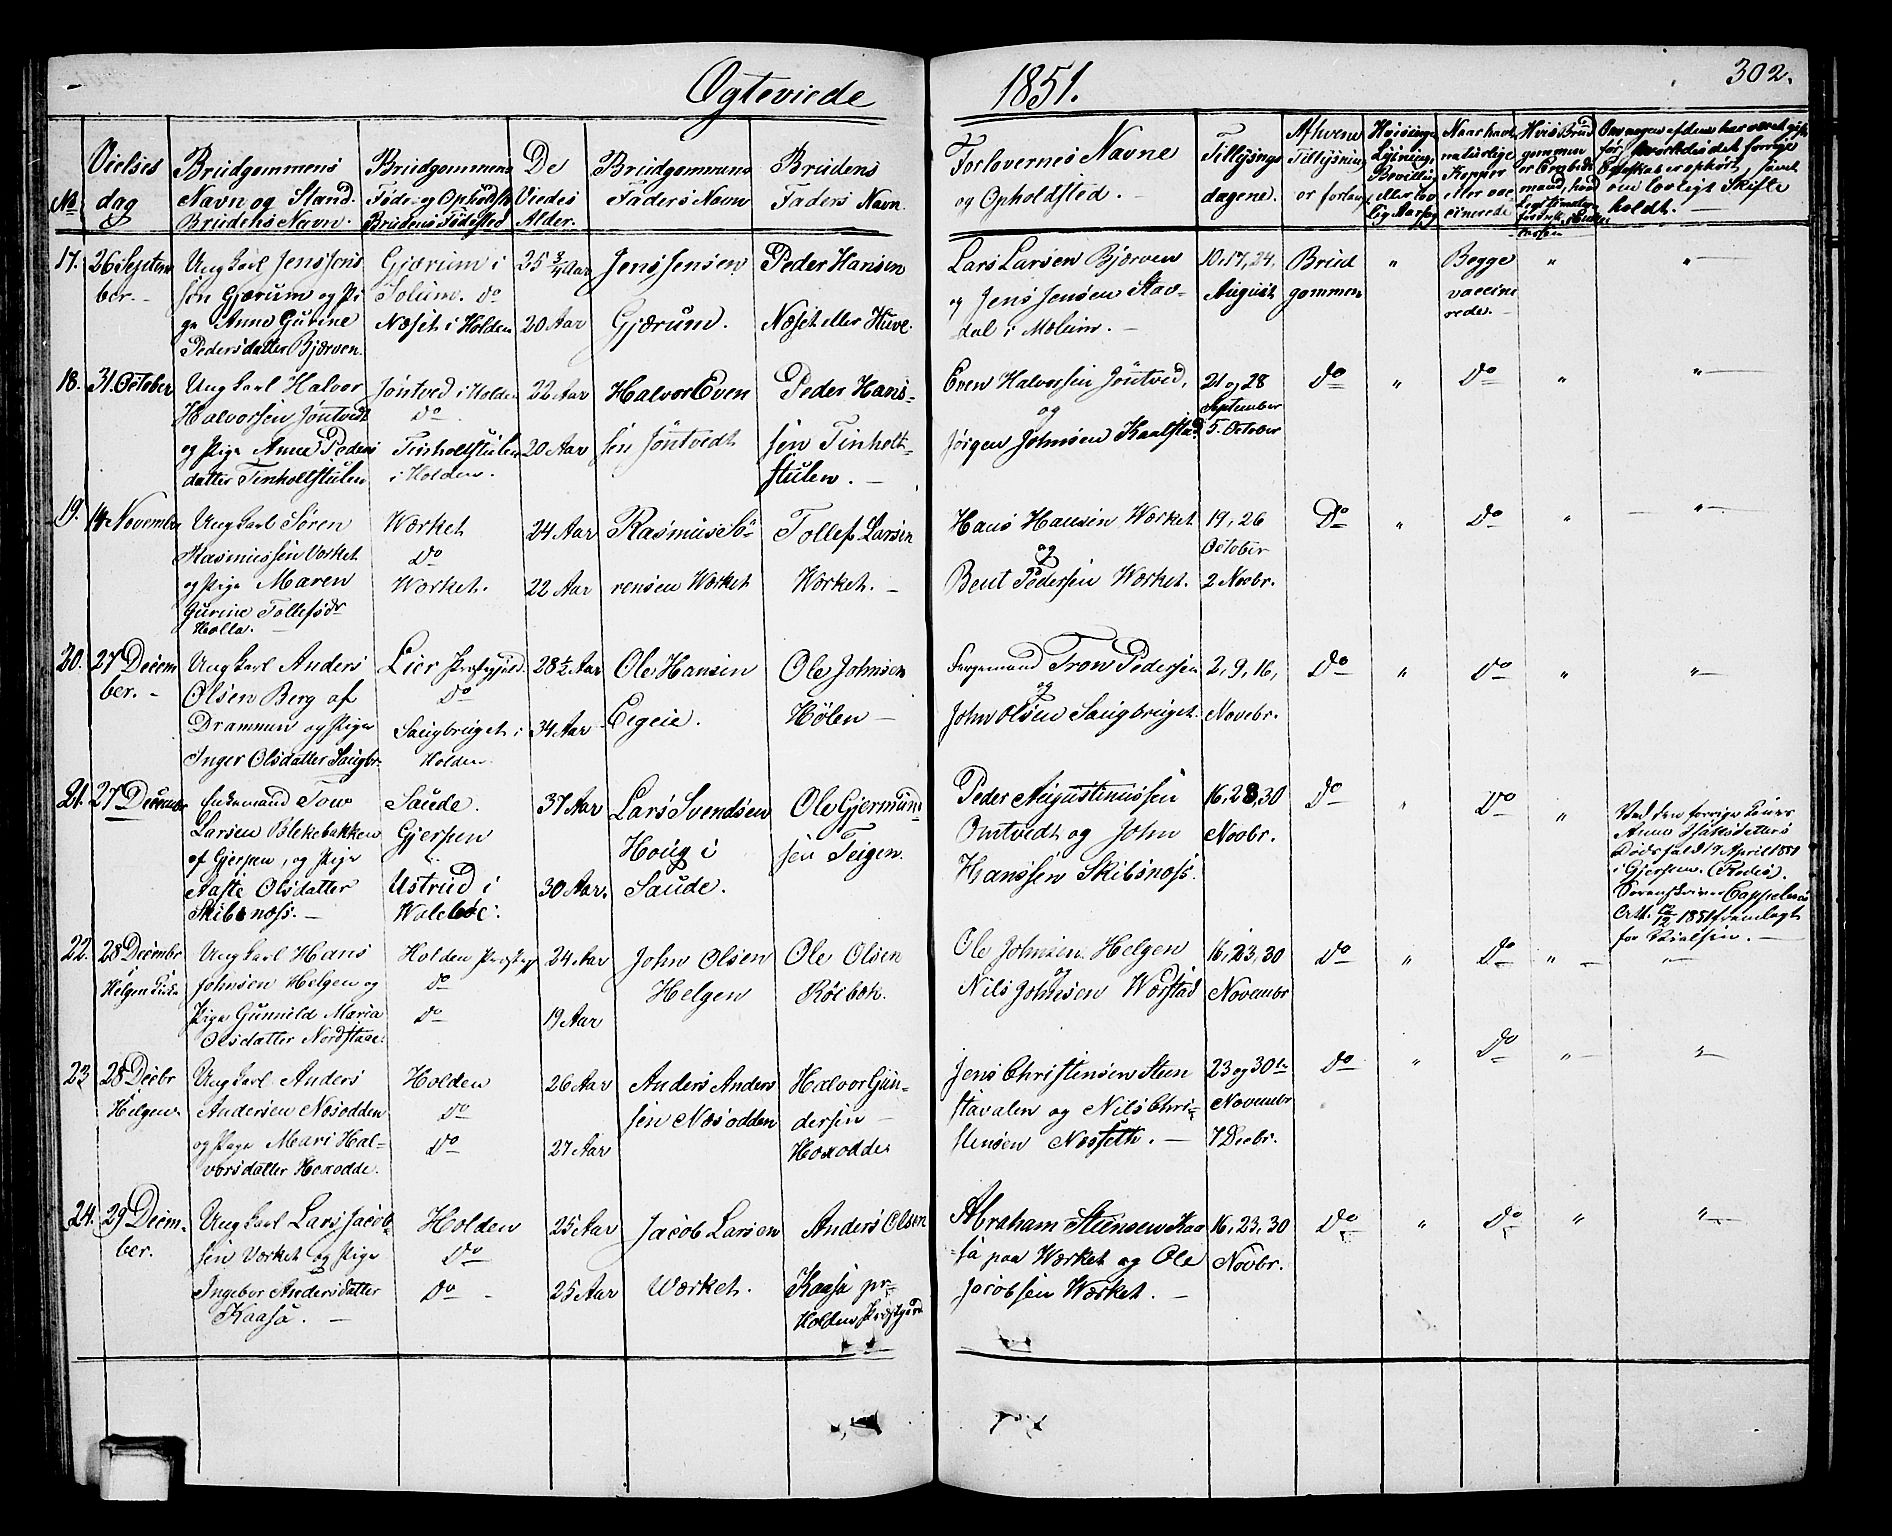 Ogteviede
1851.
302.
No
Vielses
dag
Brudgommens
Navn og Stand.
Brudens Navn.
Brudgommens
Føde- og Opholdst
Brudens Fødested
De
Viedes
Alder.
Brudgommens
Faders Navn
Brudens
Faders Navn.
Forlovernes Navne
og Opholdsted.
Tillysnings
dagene.
Af hvem
Tillysning
er forlangt
17.
26 Septem
ber. -
Ungkarl Jens Jens
sen Gjærum og Pi
ge Anne Gurine
Pedersdatter Bjærven.
Gjærum i
Solum. Do
Næset i Holden
25 3/4 Aar
20 Aar
Jens Jensen
Gjærum.
Peder Hansen
Næset eller Huve.
Lars Larsen Bjærven
og Jens Jensen Stav-
dal i Mælum. -
10, 17, 24.
August
Brud
gommen
"
Begge
vaccine
rede. -
"
"
18.
31. October
Ungkarl Halvor
Halvorsen Jøntvedt
og Pige Anne Peders
datter Tinholtstulen
Jøntved i Holden
Do
Tinholtstulen
i Holden.
22 Aar
20 Aar
Halvor Even
sen Jøntvedt
Peder Hans-
sen Tinholt-
stulen. -
Even Halvorsen Jøntved,
og
Jørgen Johnsen Kaalstad.
21 og 28
September
5. October
Do
"
Do
"
"
19.
14 Novembr
Ungkarl Søren
Rasmussen Værket
og Pige Maren
Gurine Tollefsdr
Holla. -
Wærket
Do
Wærket.
24 Aar
22 Aar
Rasmus Sö-
rensen Wærket
Tollef Larsen
Wærket. -
Hans Hansen Wærket
og
Bent Pedersen Wærket.
19, 26
October
2 Novbr.
Do
"
Do
"
"
20.
27 Decem
ber. -
Ungkarl Anders
Olsen Berg af
Drammen og Pige
Inger Olsdatter Saugbr.
Lier Præstegjeld.
Do
Saugbruget i
Holden.
28 1/2 Aar
34 Aar
Ole Hansen
Egeie.
Ole Johnsen
Hølen -
Tron Pedersen
og
John Olsen Saugbruget.
2, 9, 16,
Novebr.
Do
"
Do
"
"
21.
27 Decembr
Enkemand Tov
Larsen Blekebakken
af Gjerpen, og Pige
Aaste Olsdatter
Skibsnæss. -
Saude.
Gjerpen
Ustrud i
37 Aar
30 Aar.
Lars Svendsen
Houg i
Saude.
Ole Gjermund
sen Teigen.
Peder Augustinussen
Omtvedt og John
Hanssen Skibsnæss.
16, 23, 30
Novbr.
Do
"
Do
"
Ved den forrige Kones
Anne Isaksdatters
Dødsfald 17 April 1851
i Gjerpen.
Sorenskriver Cappelens
Att. 1851 fremlagt
for
22.
28 Decembr
Helgen Kirke
Ungkarl Hans
Johnsen Helgen og
Pige Gunnild Maria
Olsdatter Nordstaae.
Holden Præstegj
Do
Do
24 Aar
19 Aar
John Olsen
Helgen
Ole Olsen
Rølbok.
Ole Johnsen Helgen
og
Nils Johnsen Wærstad
16, 23, 30
Novembr
Do
"
Do
"
"
23
28 Decbr
Helgen.
Ungkarl Anders
Andersen Næsodden
og Pige Mari Hal-
vorsdatter Hoxodde.
Holden
Do
Do
26 Aar
27 Aar
Anders Anders
sen Næsodden
Halvor Gun-
dersen -
Hoxodde
Jens Christensen Steen
stavalen og Nils Chri-
stensen Næsseth. -
23 og 30te
Novembr
7 Decbr.
Do
"
Do
"
"
24.
29 Decem-
ber.
Ungkarl Lars Jacob-
sen Værket og Pige
Ingebor Andersdatter
Kaasa. -
Holden
Do
Do -
25 Aar
25 Aar
Jacob Larsen
Wærket.
Anders Olsen
Kaasa pr.
Holden Præstgaard
Abraham Steensen Kaa
sa paa Wærket og Ole
Jacobsen Wærket. -
16, 23, 30
Novbr.
Do
"
Do
"
"